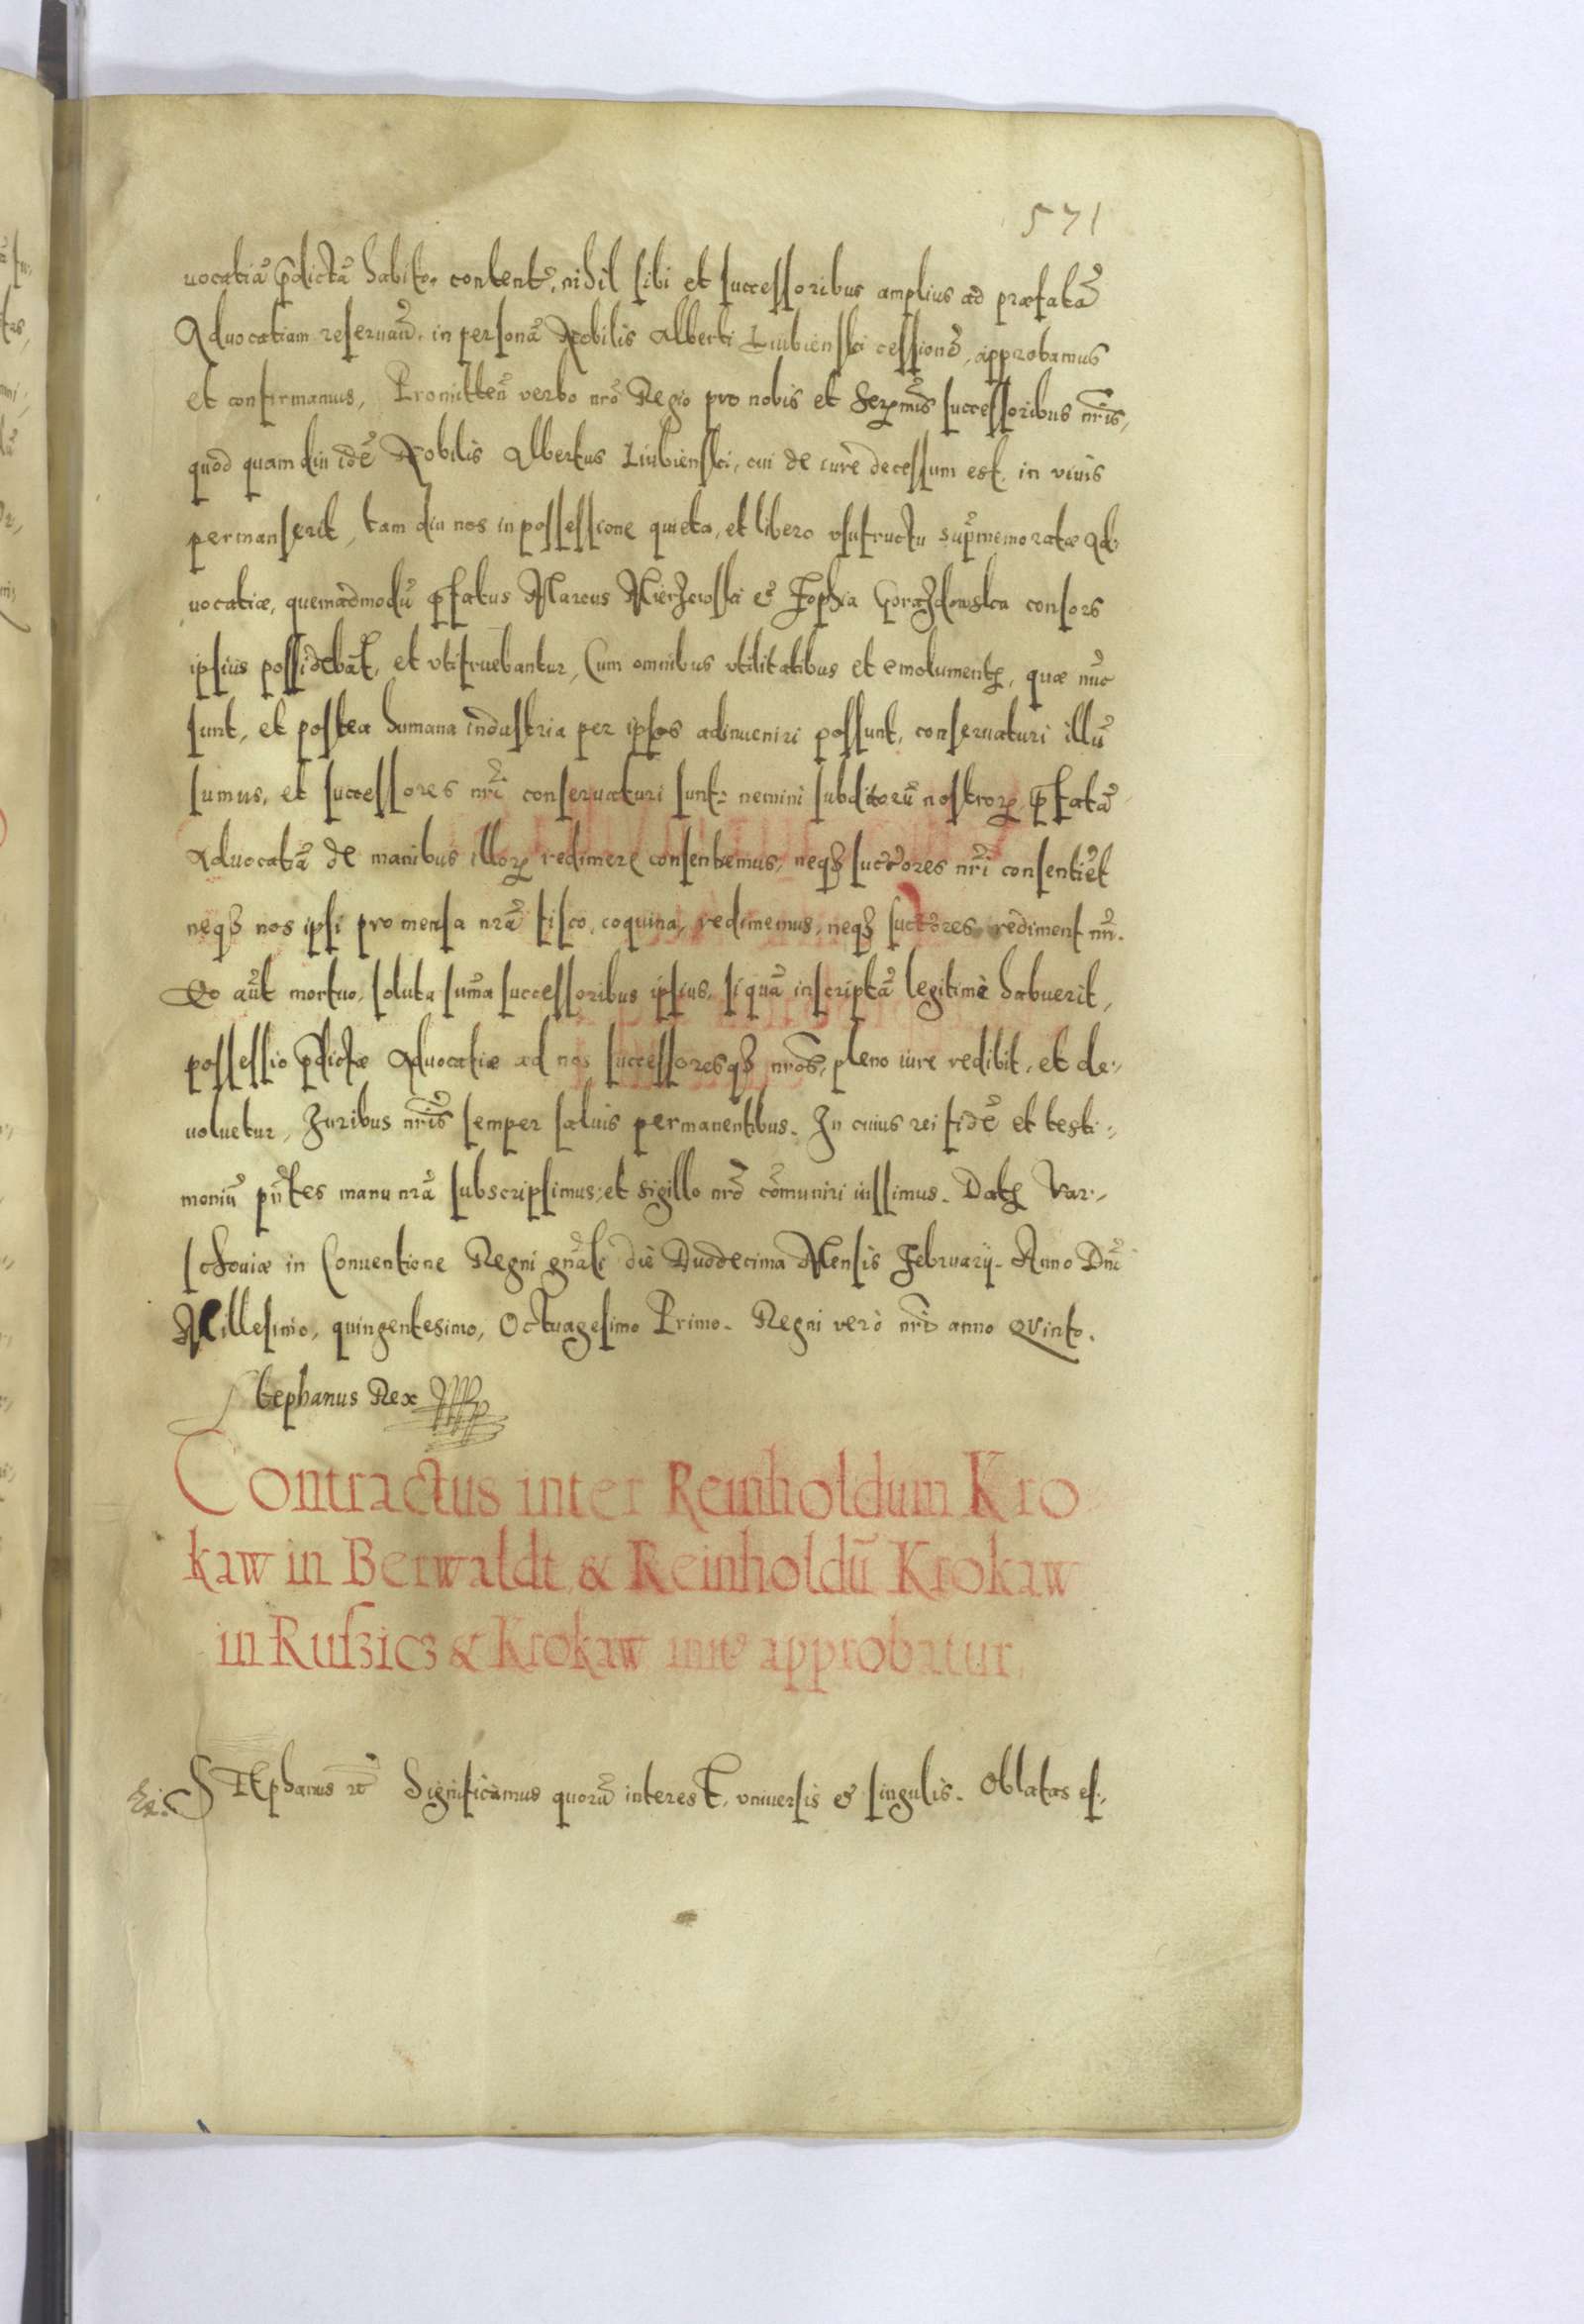 571
uocatiã p̃dictã habitor. contentũ, nihil sibi et successoribus amplius ad præfatã
Aduocatiam reseruañ. in personã Nobilis Alberti Liubienski cessionẽ, approbamus
et confirmamus, Promitteñ verbo nr̃o Regio pro nobis et Serz̃mis successoribus nr̃is,
quod quamdiu idẽ Nobilis Albertus Liubienski, cui de iure decessum est, in viuis
permanserit, tam diu nos in possessione quieta, et libero vsufructu supr̃memoratæ Ad,
uocatiæ, quemadmodũ p̃fatus Marcus Mierzewski & Sophia Gorazdowska consors
ipsius possidebãt, et vtifruebantur, Cum omnibus vtilitatibus et emolumentꝭ, quæ nũc
sunt, et postea humana industria per ipsos adinueniri possunt, conseruaturi illũ
sumus, et successores nr̃i conseruaturi sunt: nemini subditorũ nostroꝝ, p̃fatã
Aduocatiã de manibus illoꝝ redimere consentiemus, neqꝫ succ̃ores nr̃i consentiẽt
neqꝫ nos ipsi pro mensa nr̃ã fisco, coquina, redimemus, neqꝫ succ̃ores rediment nr̃i.
Eo aũt mortuo, soluta sum̃a successoribus ipsius, si quã inscriptã legitimè habuerit,
possessio p̃dictæ Aduocatiæ ad nos successoresqꝫ nr̃os, pleno iure redibit, et de:,
uoluetur, Juribus nr̃is semper saluis permanentibus. In cuius rei fidẽ et testi:,
moniũ pñtes manu nr̃ã subscripsimus, et sigillo nr̃o cõmuniri iussimus. Datꝭ Var:,
schouiæ in Conuentione Regni gñali die Duodecima Mensis Februarij. Anno Dnĩ
Millesimo, quingentesimo, Octuagesimo Primo. Regni verò nr̃i anno Quinto.
Stephanus Rex
Contractus inter Reinholdum Kro
kaw in Berwaldt & Reinholdũ Krokaw
in Rufzicz & Krokaw initꝰ approbatur.
STEphanus ꝛc̃ Significamus quorũ interest, vniuersis & singulis. Oblatas es:,